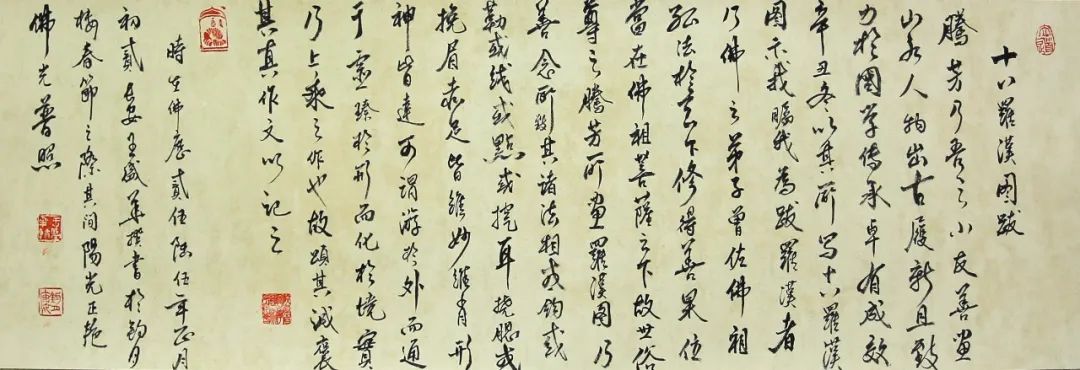 十八羅漢图跋
騰芳乃吾之小友善畫
山水人物出古履新且致
力於國学傳承卓有成效
辛丑冬以其所写十八羅漢
图示我瞩我為跋羅漢者
乃佛之弟子曾佐佛祖
弘法於天下修得善果位
當在佛祖菩薩之下故世俗
尊之騰芳所畫羅漢图乃
善念所致其诸法相或鈎或
勒或皴或點或挖耳撓腮或
挽眉赤足皆維妙維肖形
神皆達可謂游於外而通
于靈臻於形而化於境實
乃上乘之作也故頌其诚褒
其真作文以記之
時在佛历貳伍陆伍年正月
初貳 王盛華撰書於韵月
楼春節之際其间陽光正艳
佛光普照